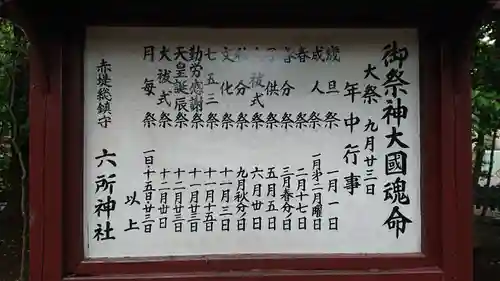 御祭神大國魂命
大祭 九月廿三日
年中行事
歳旦祭 一月一日
成人祭 一月第二月曜日
春祭 二月十七日
春分祭 三月春分日
子供祭 五月五日
大祓式 六月卅日
秋分祭 九月秋分日
文化祭 十一月三日
七五三祭 十一月十五日
勤労感謝祭 十一月廿三日
天皇誕辰祭 十二月廿三日
大祓式 十二月卅日
月毎祭 一日十五日廿三日
以上
赤堤総鎮守 六所神社